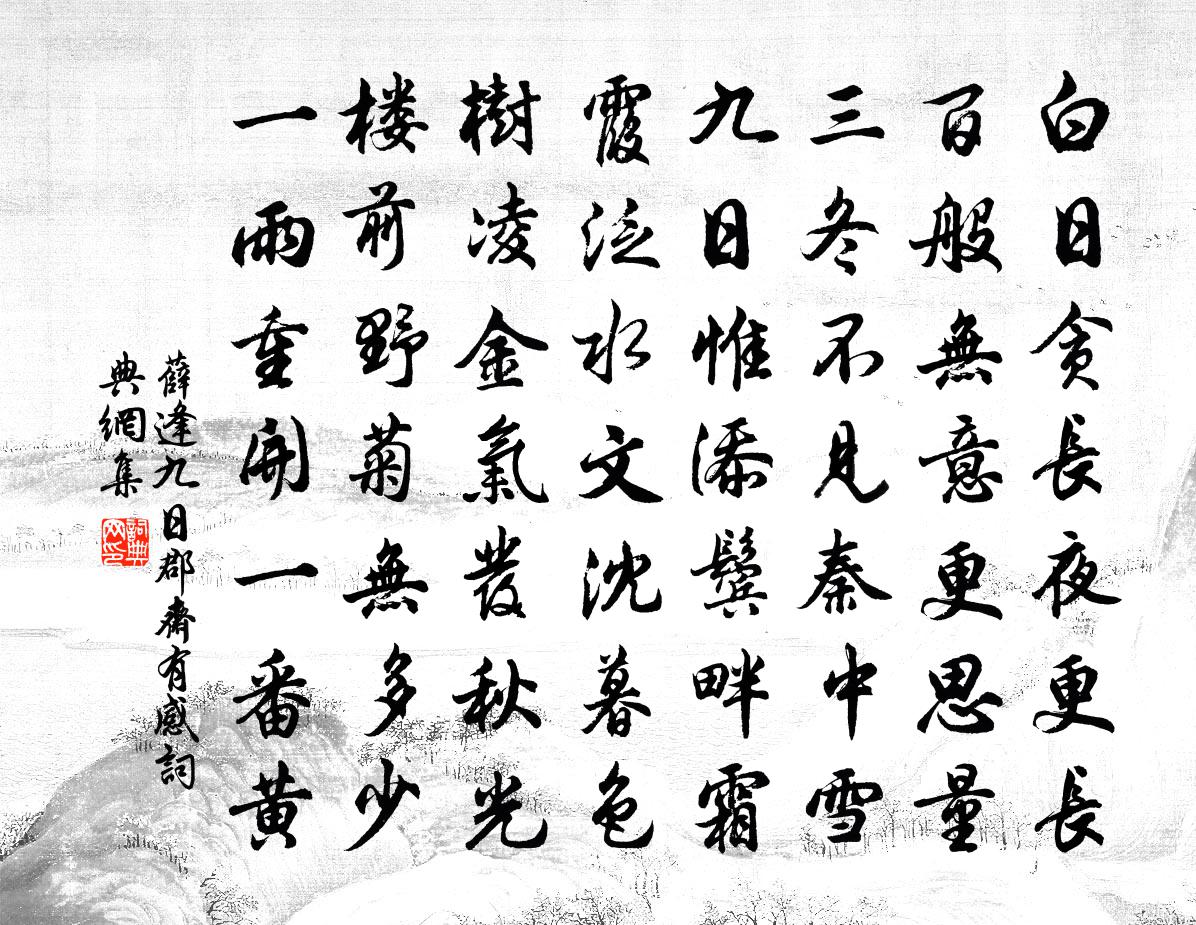 白日贪長夜更長
百般無意更思量
三冬不見秦中雪
九日惟添鬓畔霜
霞泛水文沈暮色
樹凌金氣發秋光
楼前野菊無多少
一雨重開一番黃
薛逢九日郡齋有感詞
典網集
詞典
网印